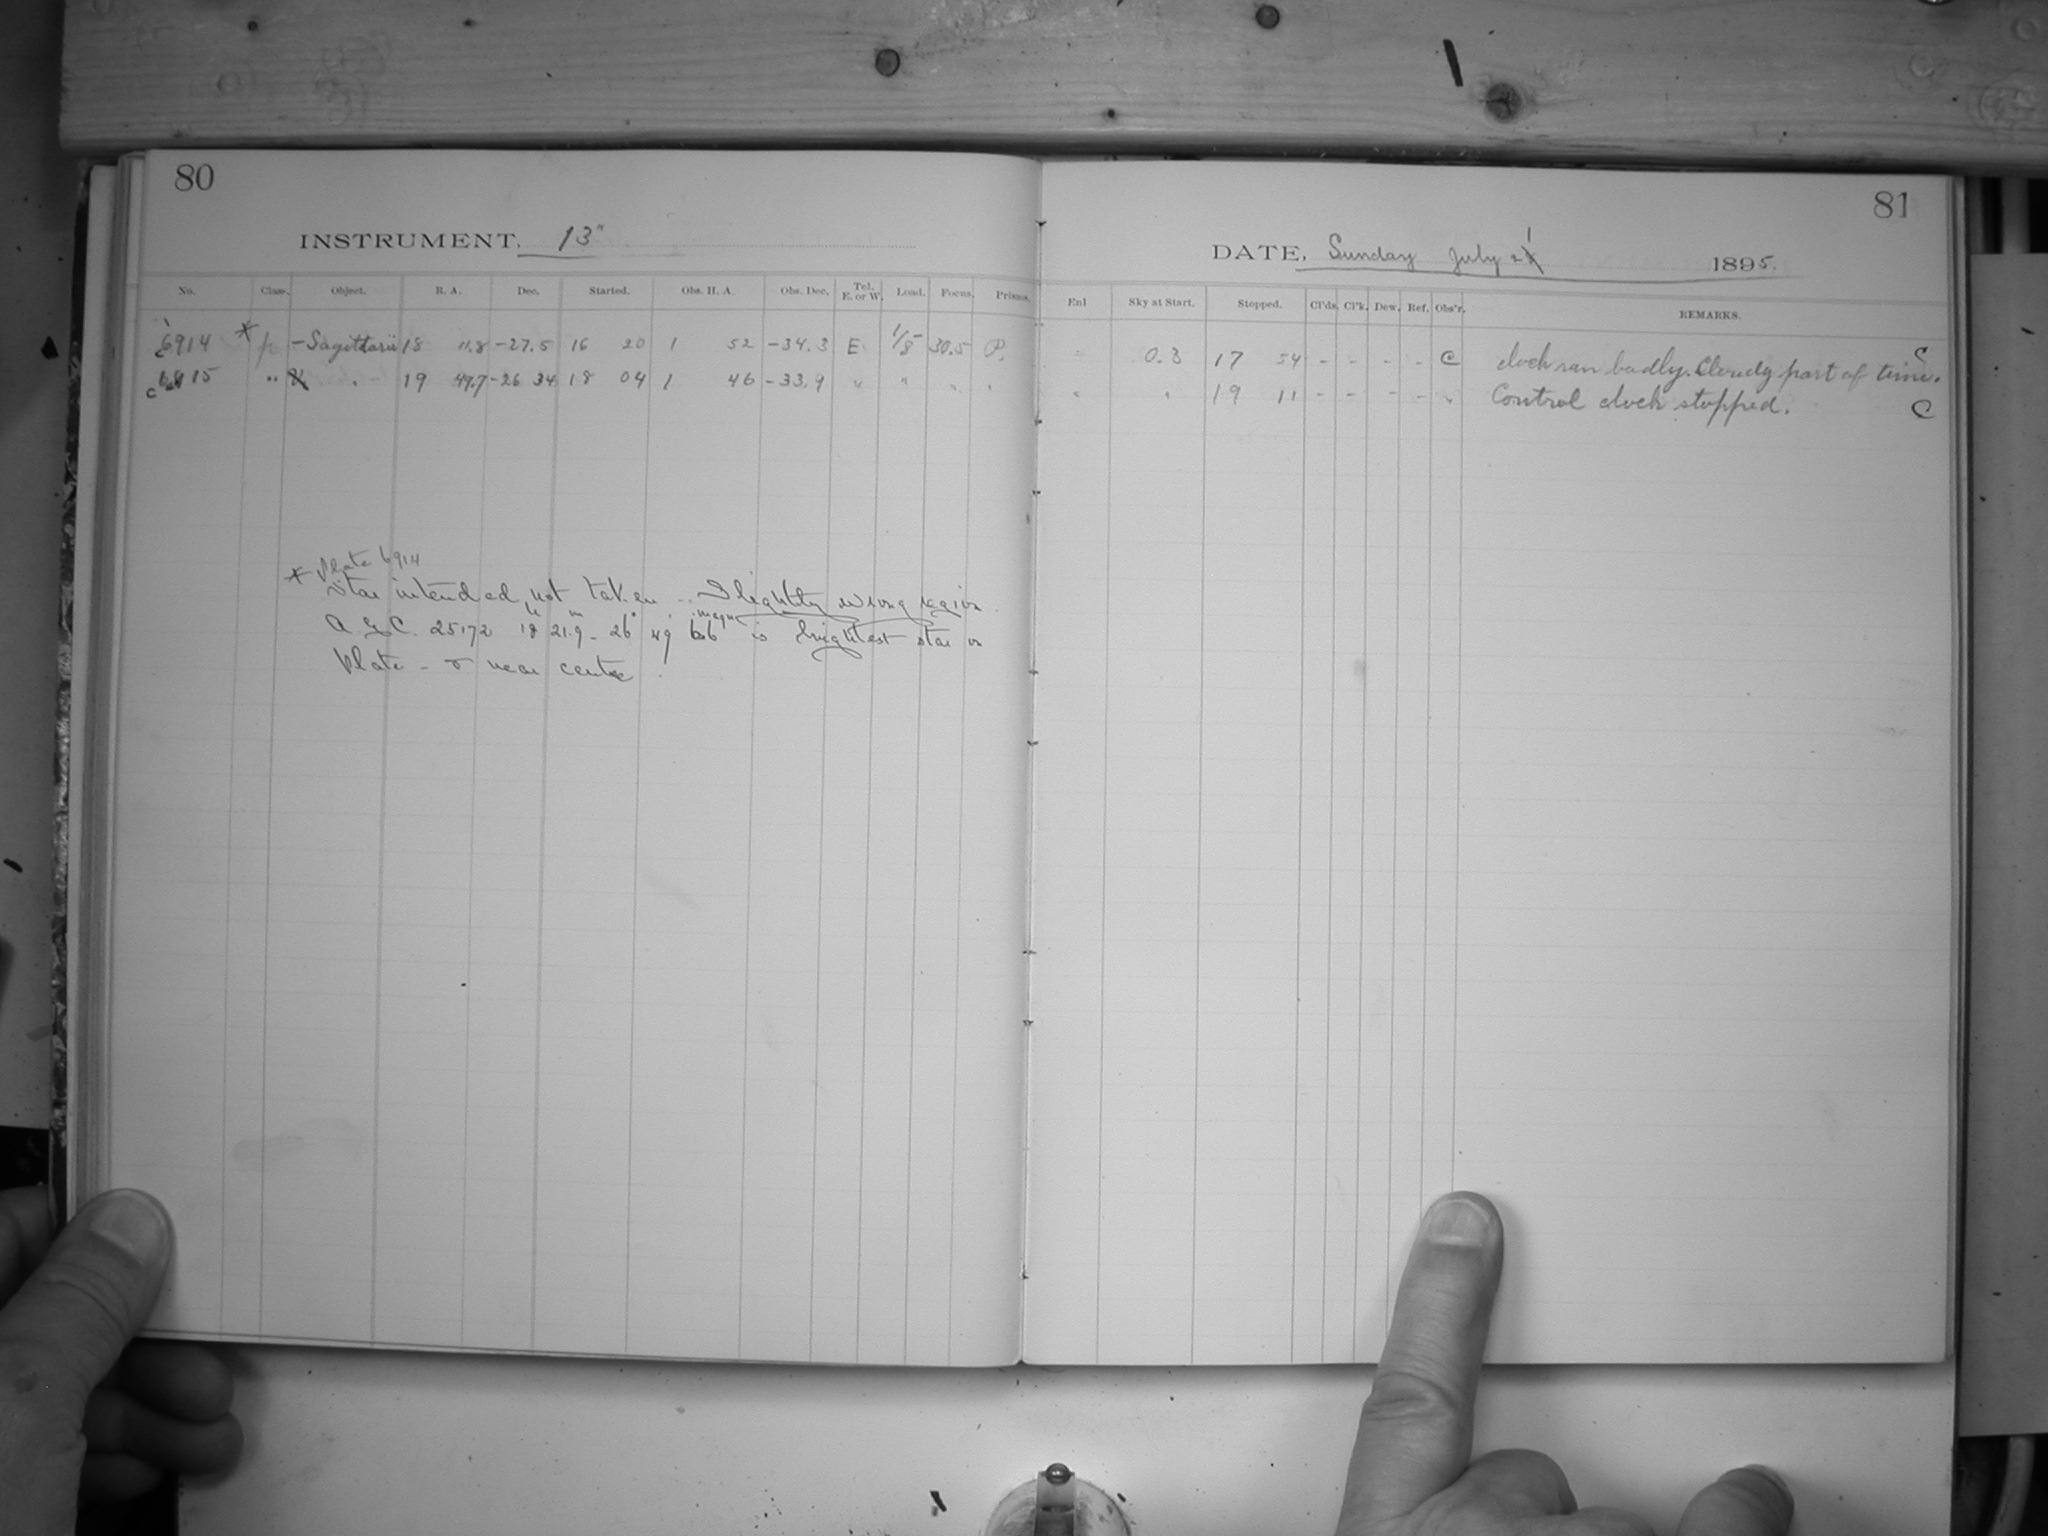 80
INSTRUMENT, 13"
No. Class. Object. R. A. Dec. Started. Obs. H. A. Obs. Dec. Tel. E. or W. Load. Focus. Prisms.
6914 * p - Sagittarii 18 11.8 -27.5 16 20 1 52 -34.3 E 1/8 30.5 P.
c 6915 " " 19 49.7 -26 34 18 04 1 46 -33.9 " " " "
* Plate 6914
Star intended not taken - Slightly wrong region.
A.G.C. 25172 18h 21m.9 - 26° 49' 6.6 magn is brightest star on
Plate - & near centre.
81
DATE, Sunday July 21 1895.
Enl Sky at Start. Stopped. Cl'ds. Cl'k. Dew. Ref. Obs'r. REMARKS.
- 0.3 17 54 - - - - C clock ran badly. Cloudy part of time. C
" " 19 11 - - - - " Control clock stopped. C